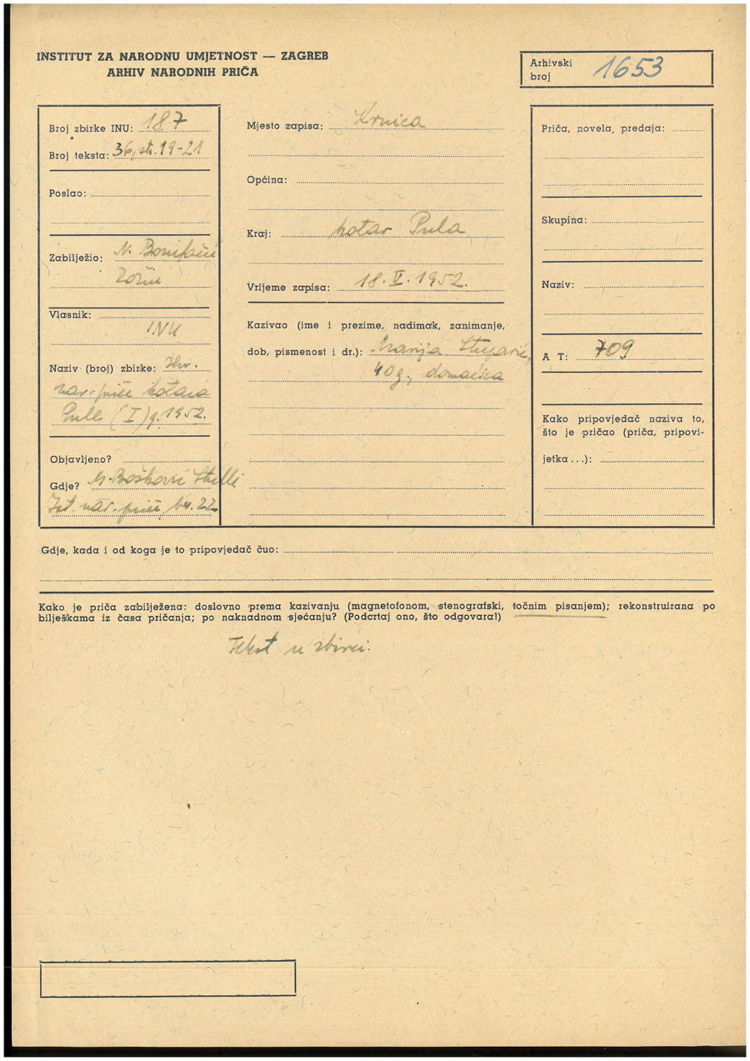 INSTITUT ZA NARODNU UMJETNOST — ZAGREB
ARHIV NARODNIH PRIČA
Arhivski
broj 1653
Broj zbirke INU: 187
Broj teksta: 36, str. 19-21
Poslao:
Zabilježio: N. Bonifačić
Rožin
Vlasnik:
INU
Naziv (broj) zbirke: Hrv.
nar. priče kotara
Pule (I) g. 1952.
Objavljeno?
Gdje? M. Bošković Stulli
Ist. nar. priče, br. 22
Mjesto zapisa: Krnica
Općina:
Kraj: kotar Pula
Vrijeme zapisa: 18. II. 1952.
Kazivao (ime i prezime, nadimak, zanimanje,
dob, pismenost i dr.): Marija
40 g., domaćica
Priča, novela, predaja:
Skupina:
Naziv:
A T: 709
Kako pripovjedač naziva to,
što je pričao (priča, pripovi-
jetka . . .):
Gdje, kada i od koga je to pripovjedač čuo:
Kako je priča zabilježena: doslovno prema kazivanju (magnetofonom, stenografski, točnim pisanjem); rekonstruirana po
bilješkama iz časa pričanja; po naknadnom sjećanju? (Podcrtaj ono, što odgovara!)
Tekst u zbirci.